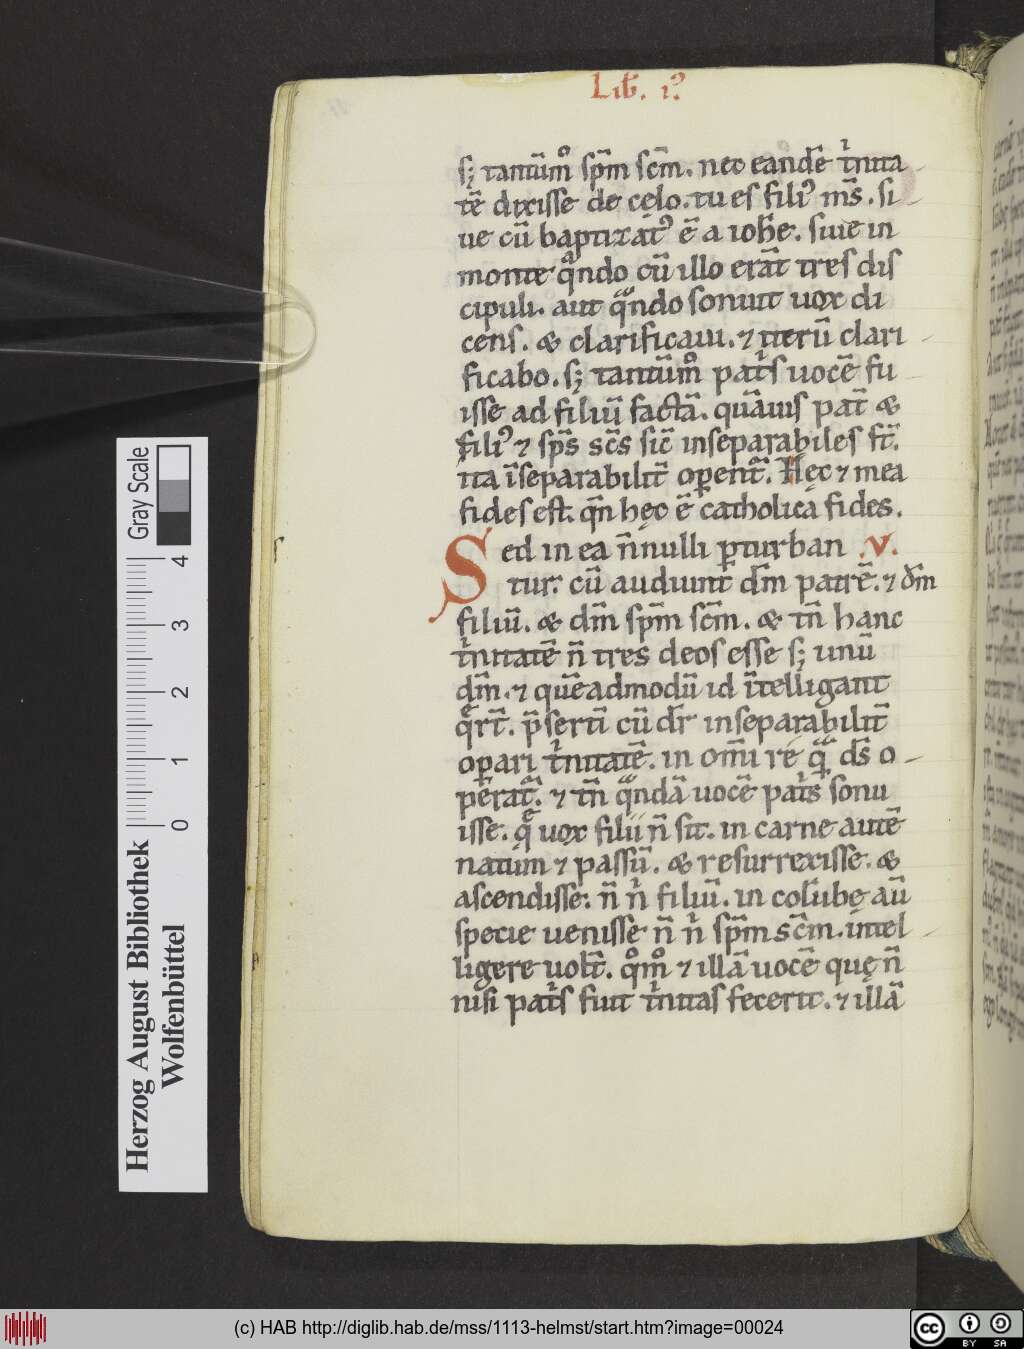 Lib̄. iꝰ
sꝫ tantūmͦ sp̄m sc̄m. nec eandē t͛nita
tē dixisse de celo. tu es filiꝰ m̄s. si
ue cū baptizatꝰ ē a ioh̄e. siue in
monte qͣndo cū illo erāt tres dis
cipuli. aut qͣndo sonuit uox di
cens. & clarificaui. ⁊ iterū clari
ficabo. sꝫ tantūmͦ pat͛s uocē fu
isse ad filiū factā. quāuis pat̄ &
filiꝰ ⁊ sp̄s sc̄s sic̄ inseparabiles st̄.
ita īseparabilit̄ operent᷑. Hec ⁊ mea
fides est. qn̄ hęc ē catholica fides.
Sed in ea n̄nulli ꝑturban .v.
tur. cū audiunt dm̄ patrē. ⁊ dm̄
filiū. & dm̄ sp̄m sc̄m. & tn̄ hanc
t͛nitatē n̄ tres deos esse sꝫ unū
dm̄. ⁊ quēadmodū id ītelligant
q̄rt̄. p̄sertī cū dr̄ inseparabilit̄
oꝑari t͛nitatē. in om̄i re qͣ ds̄ o
perat᷑. ⁊ tn̄ qͣndā uocē pat͛s sonu
isse. q̄ uox filii n̄ sit. in carne autē
natum ⁊ passū. & resurrexisse. &
ascendisse. n̄ n͛ filiū. in colūbę aū
specie uenisse n̄ n͛ sp̄m sc̄m. intel
ligere uolt̄. qͦmͦ ⁊ illā uocē quę n̄
nisi pat͛s fuit t͛nitas fecerit. ⁊ illā
Gray Scale
4
3
2
1
0
Herzog August Bibliothek
Wolfenbüttel
(c) HAB http://diglib.hab.de/mss/1113-helmst/start.htm?image=00024
cc
BY SA